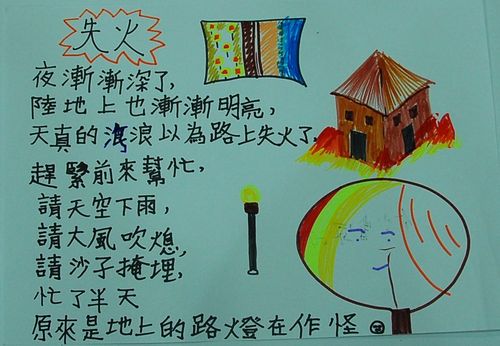 失火
夜漸漸深了,
陸地上也漸漸明亮,
天真的浪浪以為路上失火了,
趕緊前來幫忙,
請天空下雨,
請大風吹熄,
請沙子掩埋,
忙了半天
原來是地上的路燈在作怪